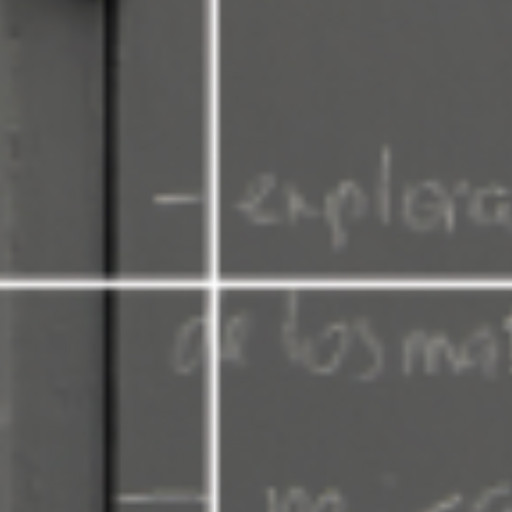 - explora
de los mat